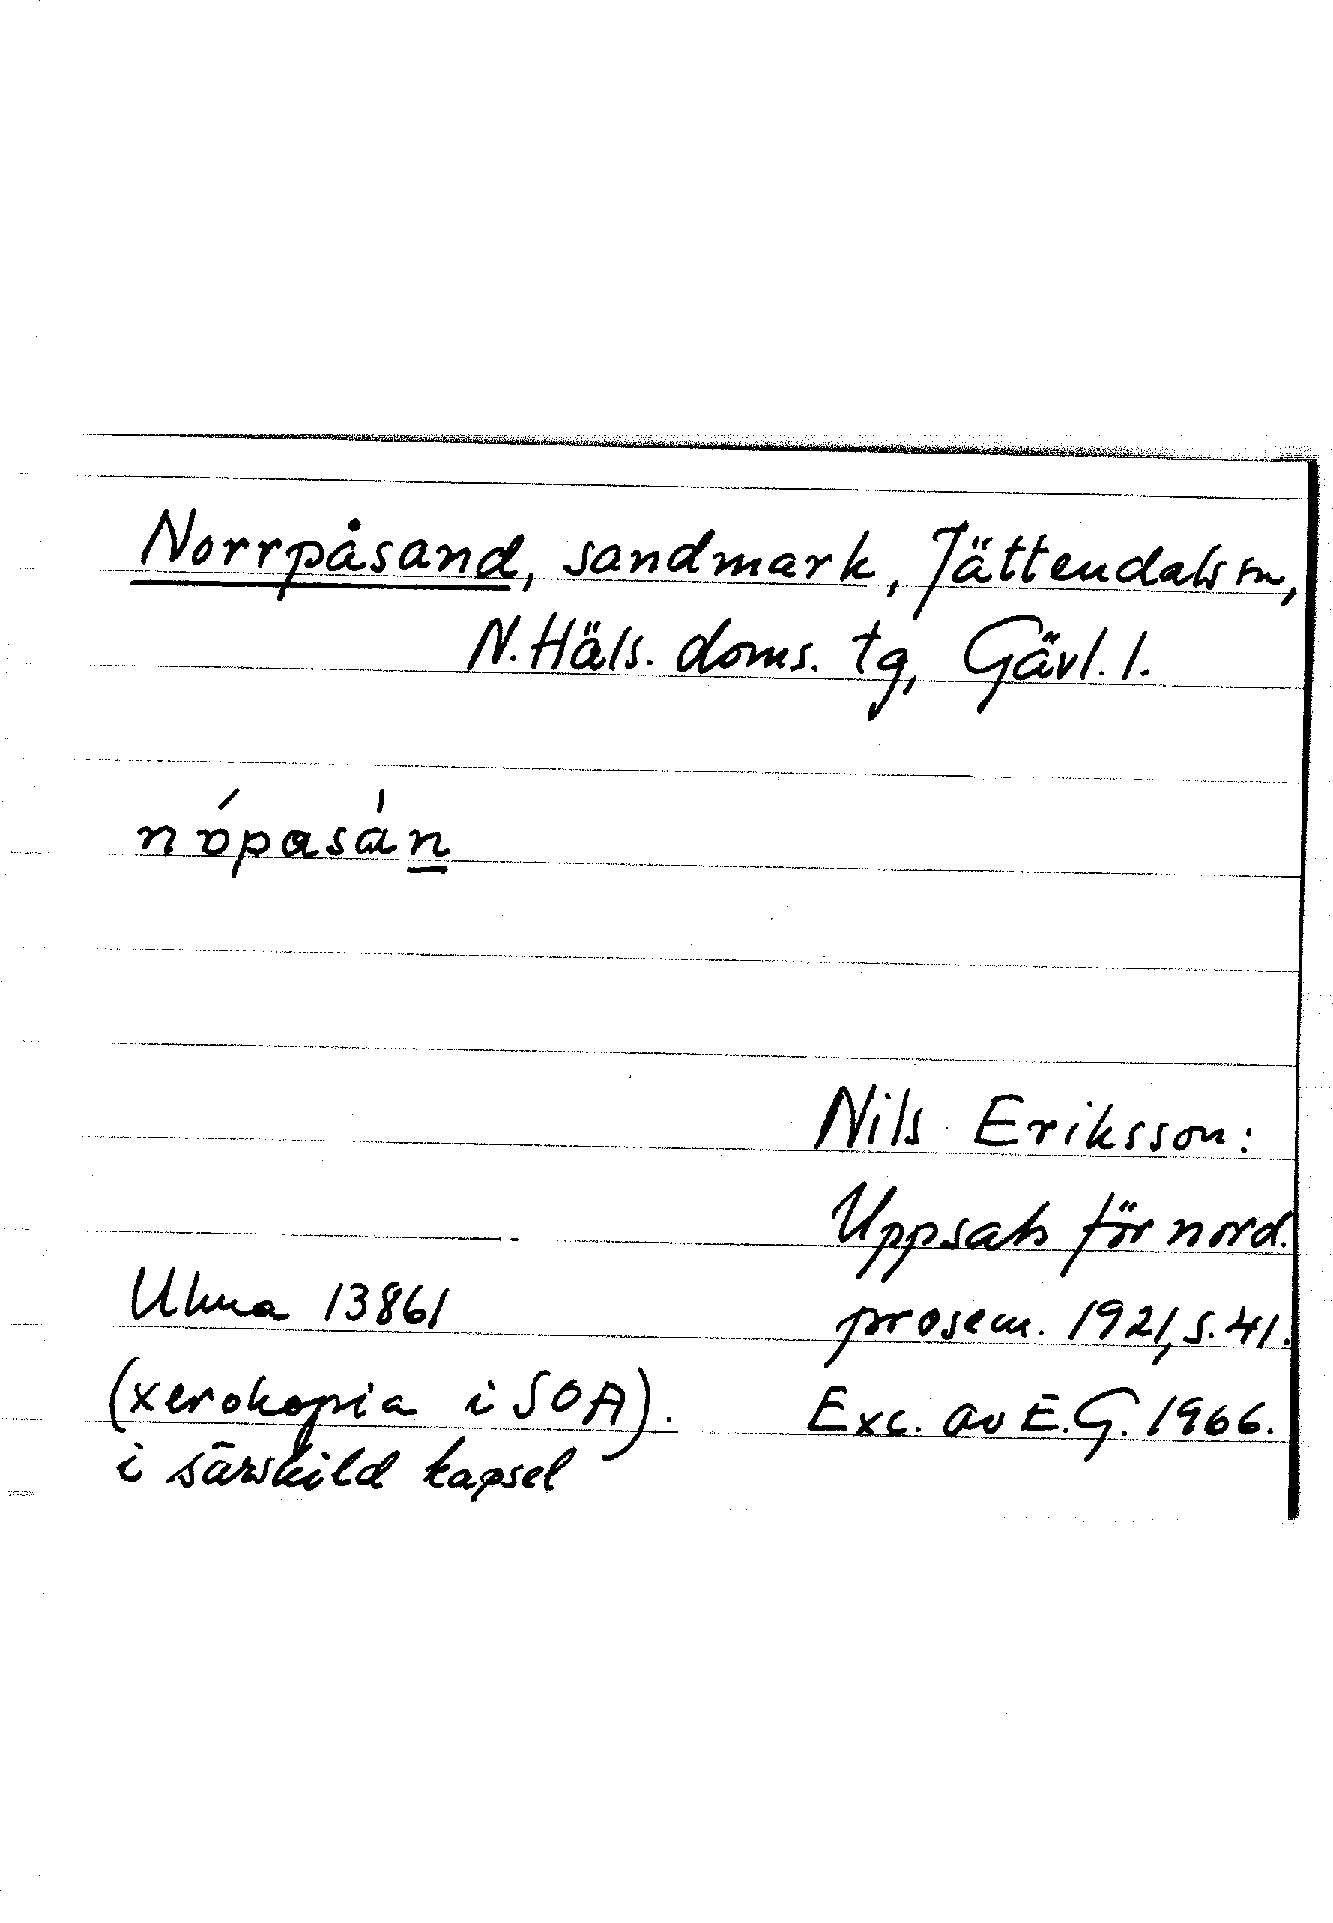 Norrpåsand, sandmark, Jättendals sn,
N. Häls. doms. tg, Gävl. l.
nópasán
Nils Eriksson:
Uppsats för nord.
Ulma 13861
prosem. 1921, s. 41.
(xerokopia i SOA).
Exc. av E.G. 1966.
i särskild kapsel